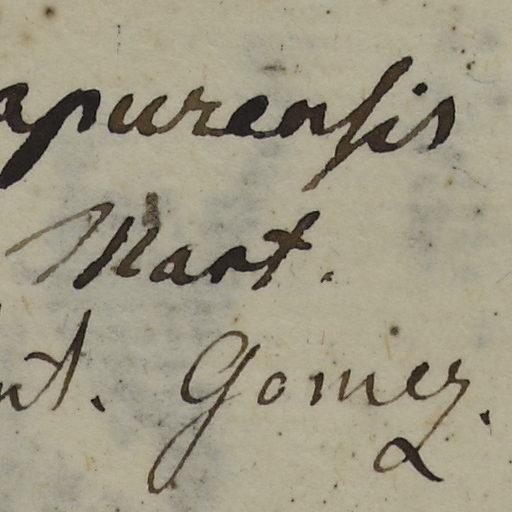 apurensis
Mart.
nt. Gomez.